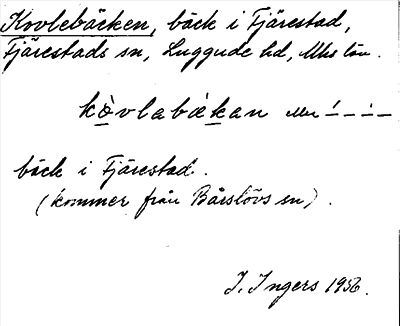 Kovlebäcken, bäck i Fjärestad,
Fjärestads sn, Luggude hd, Mhs län.
kòvlabækan
bäck i Fjärestad.
(kommer från Bårslövs sn).
I. Ingers 1956.